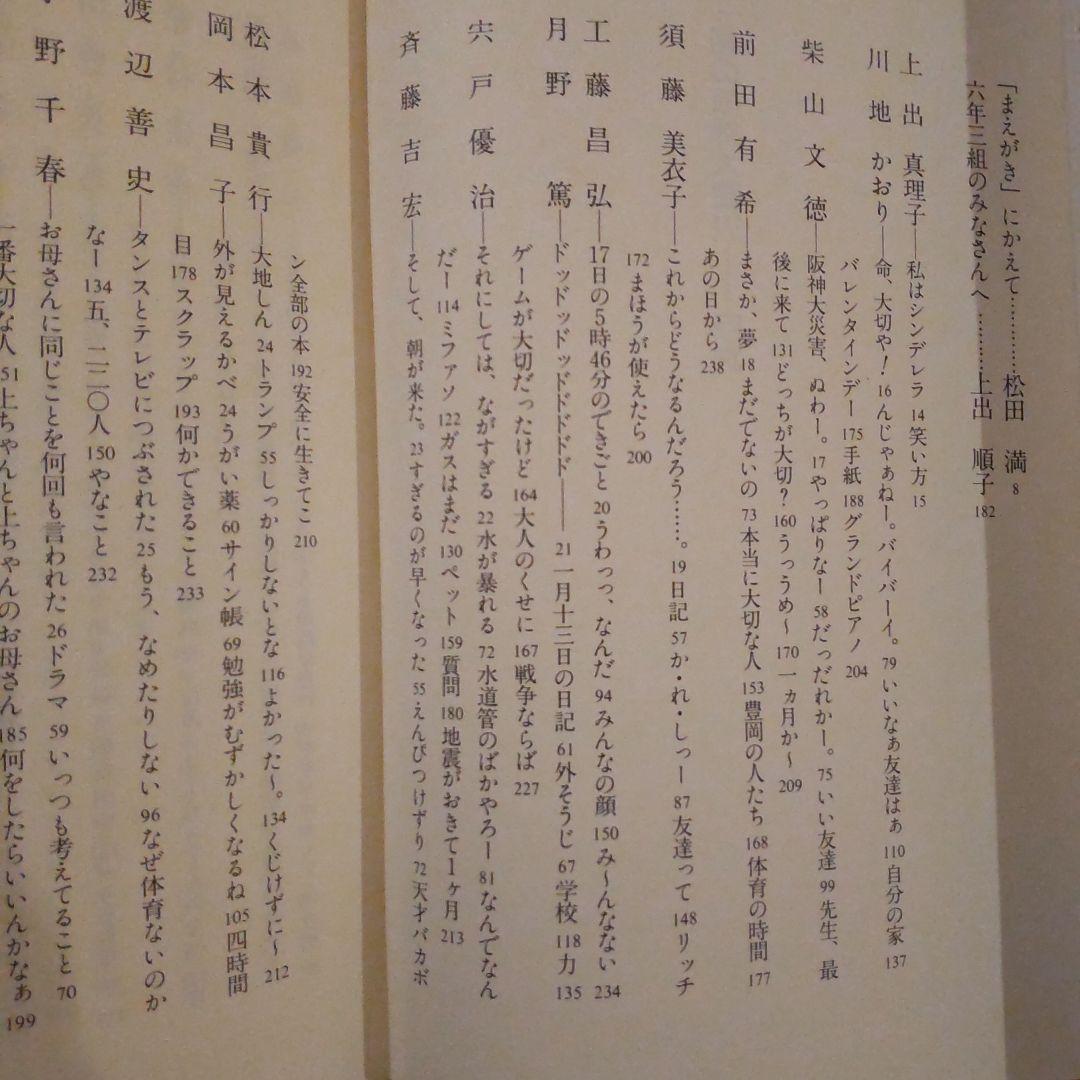 「まえがき」にかえて…………松田 満 8
六年三組のみなさんへ………上出 順子 182
上出 真理子——私はシンデレラ 14 笑い方 15
川地 かおり——命、大切や! 16 んじゃぁねー。バイバーイ。 79 いいなぁ友達はぁ 110 自分の家 137
バレンタインデー 175 手紙 188 グランドピアノ 204
柴山文徳——阪神大災害、ぬわー。 17 やっぱりなー 58 だっだれかー。 75 いい友達 99 先生、最
後に来て 131 どっちが大切? 160 うっうめ〜 170 一ヵ月か〜 209
前田有希——まさか、夢 18 まだでないの 73 本当に大切な人 153 豊岡の人たち 168 体育の時間 177
あの日から 238
須藤美衣子——これからどうなるんだろう……。 19 日記 57 か・れ・しっー 87 友達って 148 リッチ
172 まほうが使えたら 200
工藤昌弘——17日の5時46分のできごと 20 うわっっ、なんだ 94 みんなの顔 150 み〜んなない 234
月野 篤——ドッドッドッドドドドド—— 21 一月十三日の日記 61 外そうじ 67 学校 118 力 135
ゲームが大切だったけど 164 大人のくせに 167 戦争ならば 227
宍戸優治——それにしては、ながすぎる 22 水が暴れる 72 水道管のばかやろー 81 なんでなん
だー 114 ミファソ 122 ガスはまだ 130 ペット 159 質問 180 地震がおきて1ヶ月 213
斉藤吉宏——そして、朝が来た。 23 すぎるのが早くなった 55 えんぴつけずり 72 天才バカボ
ン全部の本 192 安全に生きてこ 210
松本貴行——大地しん 24 トランプ 55 しっかりしないとな 116 よかった〜。 134 くじけずに〜 212
岡本昌子——外が見えるかべ 24 うがい薬 60 サイン帳 69 勉強がむずかしくなるね 105 四時間
目 178 スクラップ 193 何かできること 233
渡辺善史——タンスとテレビにつぶされた 25 もう、なめたりしない 96 なぜ体育ないのか
なー 134 五、二二〇人 150 やなこと 232
野千春——お母さんに同じことを何回も言われた 26 ドラマ 59 いっつも考えてること 70
一番大切な人 51 上ちゃんと上ちゃんのお母さん 185 何をしたらいいんかなぁ 199